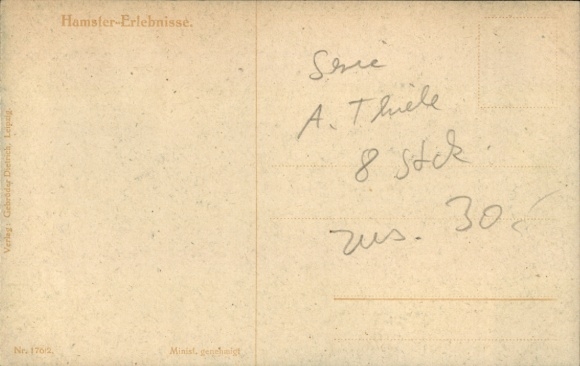 Hamster-Erlebnisse.
Verlag: Gebrüder Dietrich, Leipzig.
Nr. 176/2.
Minist. genehmigt
Serie
A. Thiele
8 Stck.
zus. 30,-